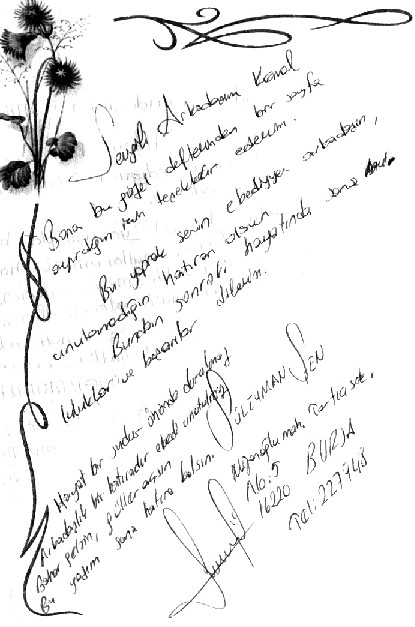 Sevgili Arkadaşım Kemal
Bana bu güzel defterinden bir sayfa
ayırdığın için teşekkür ederim.
Bu yaprak senin ebediyyen arkadaşın,
unutamadığın hatıran olsun
Bundan sonraki hayatında sana
luluklar ve başarılar dilerim.
Hayat bir sudur önünde durulmaz
Arkadaşlık bir hatıradır ebedi unutulmaz
Bahar gelsin, güller açsın
Bu yazım sana hatıra kalsın.
ŞEN
mah. sok.
No: 5
16220 BURSA
Tel: 227748